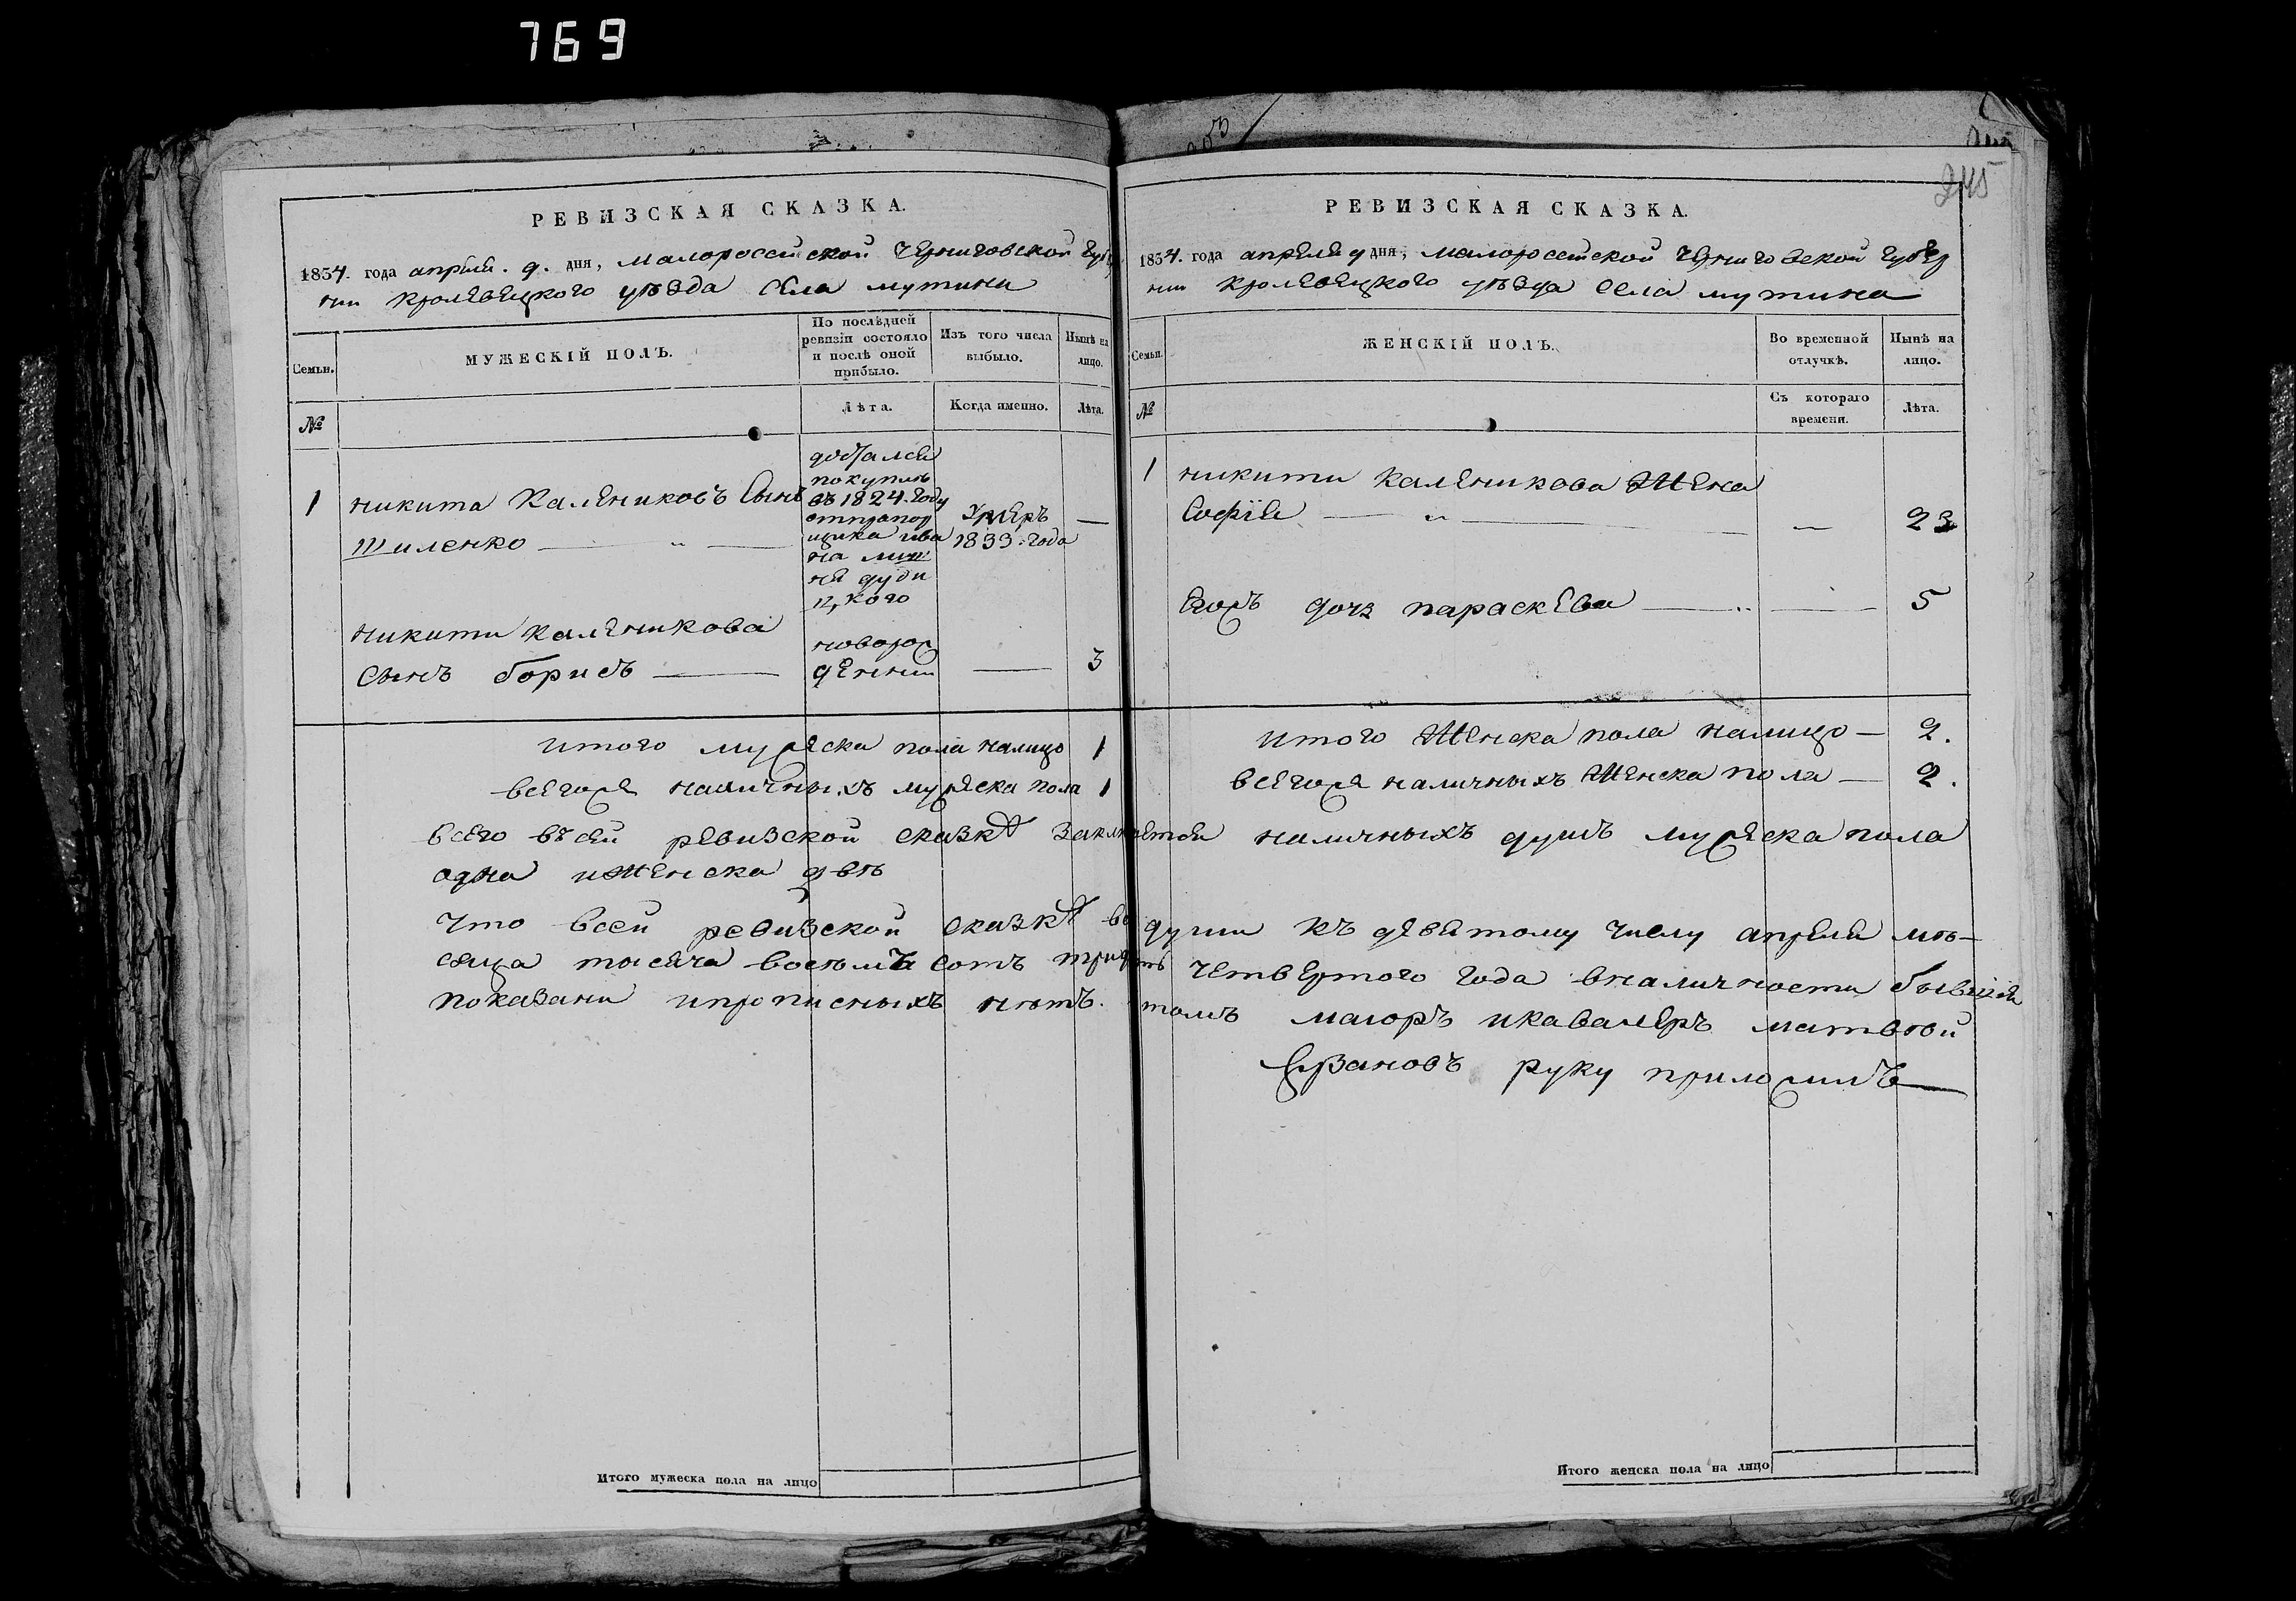 769
245
РЕВИЗСКАЯ СКАЗКА.
1834. года апрѣля. 9. дня, малоросейской Черниговской Губер
нии кролевецкого уѣзда Села мутина
Семьи.
МУЖЕСКІЙ ПОЛЪ.
По послѣдней ревизіи состояло и послѣ оной прибыло.
Изъ того числа выбыло.
Нынѣ на лицо.
№
Лѣта.
Когда именно.
Лѣта.
1
никита Калениковъ Сынъ
шиленко
досталсея
покупкѣ
въ 1824. году
отпрапор
щика ива
на
на дуби
цкого
Умеръ
1833. года
—
никити каленикова
сынъ борисъ
новорож
денни
—
3
итого мужеска пола налицо 1
всегоже наличныхъ мужеска пола 1
РЕВИЗСКАЯ СКАЗКА.
1834. года апреля 9 дня, малоросейской черниговской губер
нии кролевецкого уѣзда села мутина
Семьи.
ЖЕНСКІЙ ПОЛЪ.
Во временной отлучкѣ.
Нынѣ на лицо.
№
Съ котораго времени.
Лѣта.
1
никити каленикова жена
Софія — — 23
Егожъ дочь параскева — — 5
итого женска пола налицо — 2.
всегоже наличныхъ женска пола — 2.
всего въсей ревизской сказкѣ наличныхъ душъ мужеска пола
одна иженска двѣ
Что всей ревизской сказкѣ все души къ девятому числу апреля мѣ-
сяца тысяча восемъ сотъ тридцать четвертого года вналичности бывшія
показани ипрописныхъ нѣтъ. томъ маиоръ икавалеръ матвѣй
руку приложилъ
Итого мужеска пола на лицо
Итого женска пола на лицо